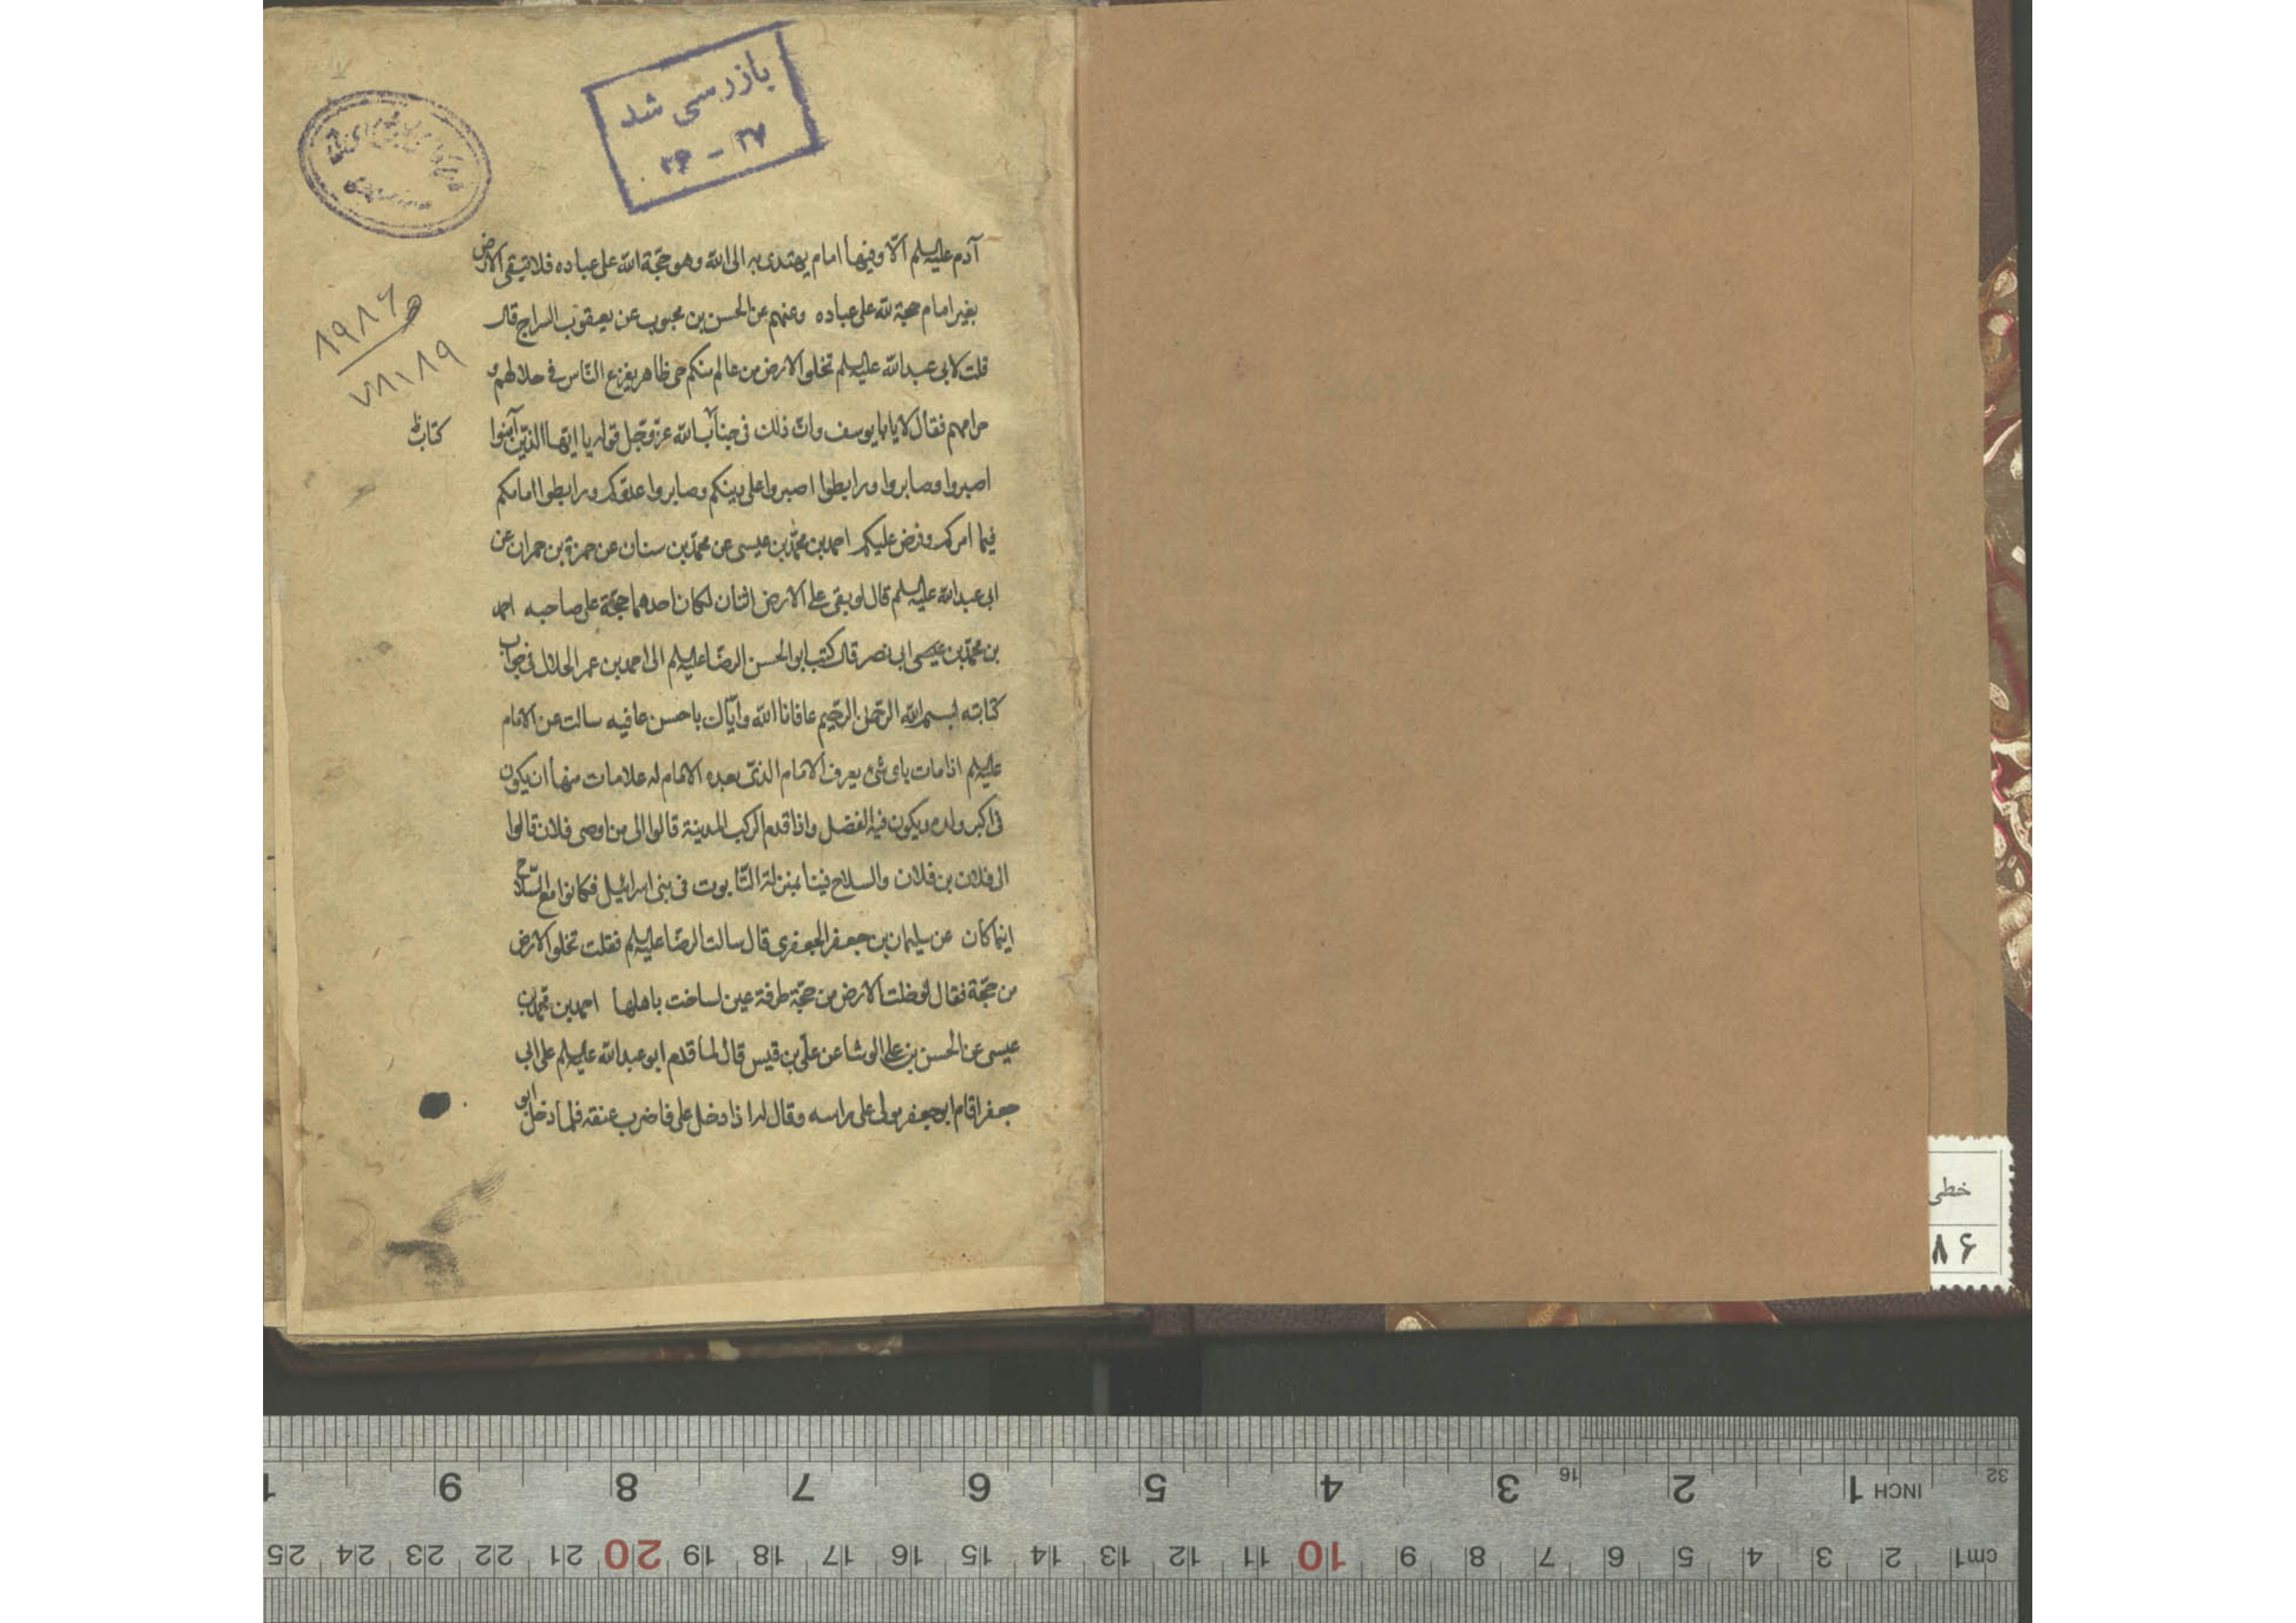 بازرسی شد
۳۶ - ۳۷
۱۹۸۶
۷۸۱۸۹
آدم علیه السلم الّا وفیها امام یهتدی به الی الله وهو حجّة الله علی عباده فلا تبقی الارض
بغیر امام حجة لله علی عباده وعنهم عن الحسن بن محبوب عن یعقوب السراج قال
قلت لابی عبد الله علیه السلم تخلو الارض من عالم منکم حی ظاهر یفزع النّاس فی حلالهم و
حرامهم فقال لا یابا یوسف وانّ ذلک فی کتاب الله عزّ وجل قوله یا ایها الذین آمنوا
کتاب
اصبروا وصابروا ورابطوا اصبروا علی دینکم وصابروا عدوکم ورابطوا امامکم
فیما امرکم وفرض علیکم احمد بن محمّد بن عیسی عن محمّد بن سنان عن حمزة بن حمران عن
ابی عبد الله علیه السلم قال لو بقی علی الارض اثنان لکان احدهما حجّة علی صاحبه احمد
بن محمّد بن عیسی ابی نصر قال کتب ابو الحسن الرضا علیه السلم الی احمد بن عمر الحلال فی جواب
کتابته بسم الله الرّحمن الرّحیم عافانا الله وایّاک باحسن عافیه سالت عن الامام
علیه السلم اذا مات بای شیء یعرف الامام الذی بعده الامام له علامات منها ان یکون
فی اکبر ولده ویکون فیه الفضل واذا قدم الرکب المدینة قالوا الی من اوصی فلان قالوا
الی فلان بن فلان والسلاح فینا بمنزلة التّابوت فی بنی اسرائیل فکانوا مع السّلاح
اینما کان عن سلیمان بن جعفر الجعفری قال سالت الرضا علیه السلم فقلت تخلو الارض
من حجّة فقال لو خلت الارض من حجّة طرفة عین لساخت باهلها احمد بن محمد بن
عیسی عن الحسن بن علی الوشا عن علی بن قیس قال لما قدم ابو عبد الله علیه السلم علی ابی
جعفر اقام ابو جعفر مولی علی راسه وقال له اذا دخل علی فاضرب عنقه فلما دخل ابو
خطی
۶۷
32 INCH 1 2 3 16 4 5 6 7 8 9 1
cm1 2 3 4 5 6 7 8 9 10 11 12 13 14 15 16 17 18 19 20 21 22 23 24 25